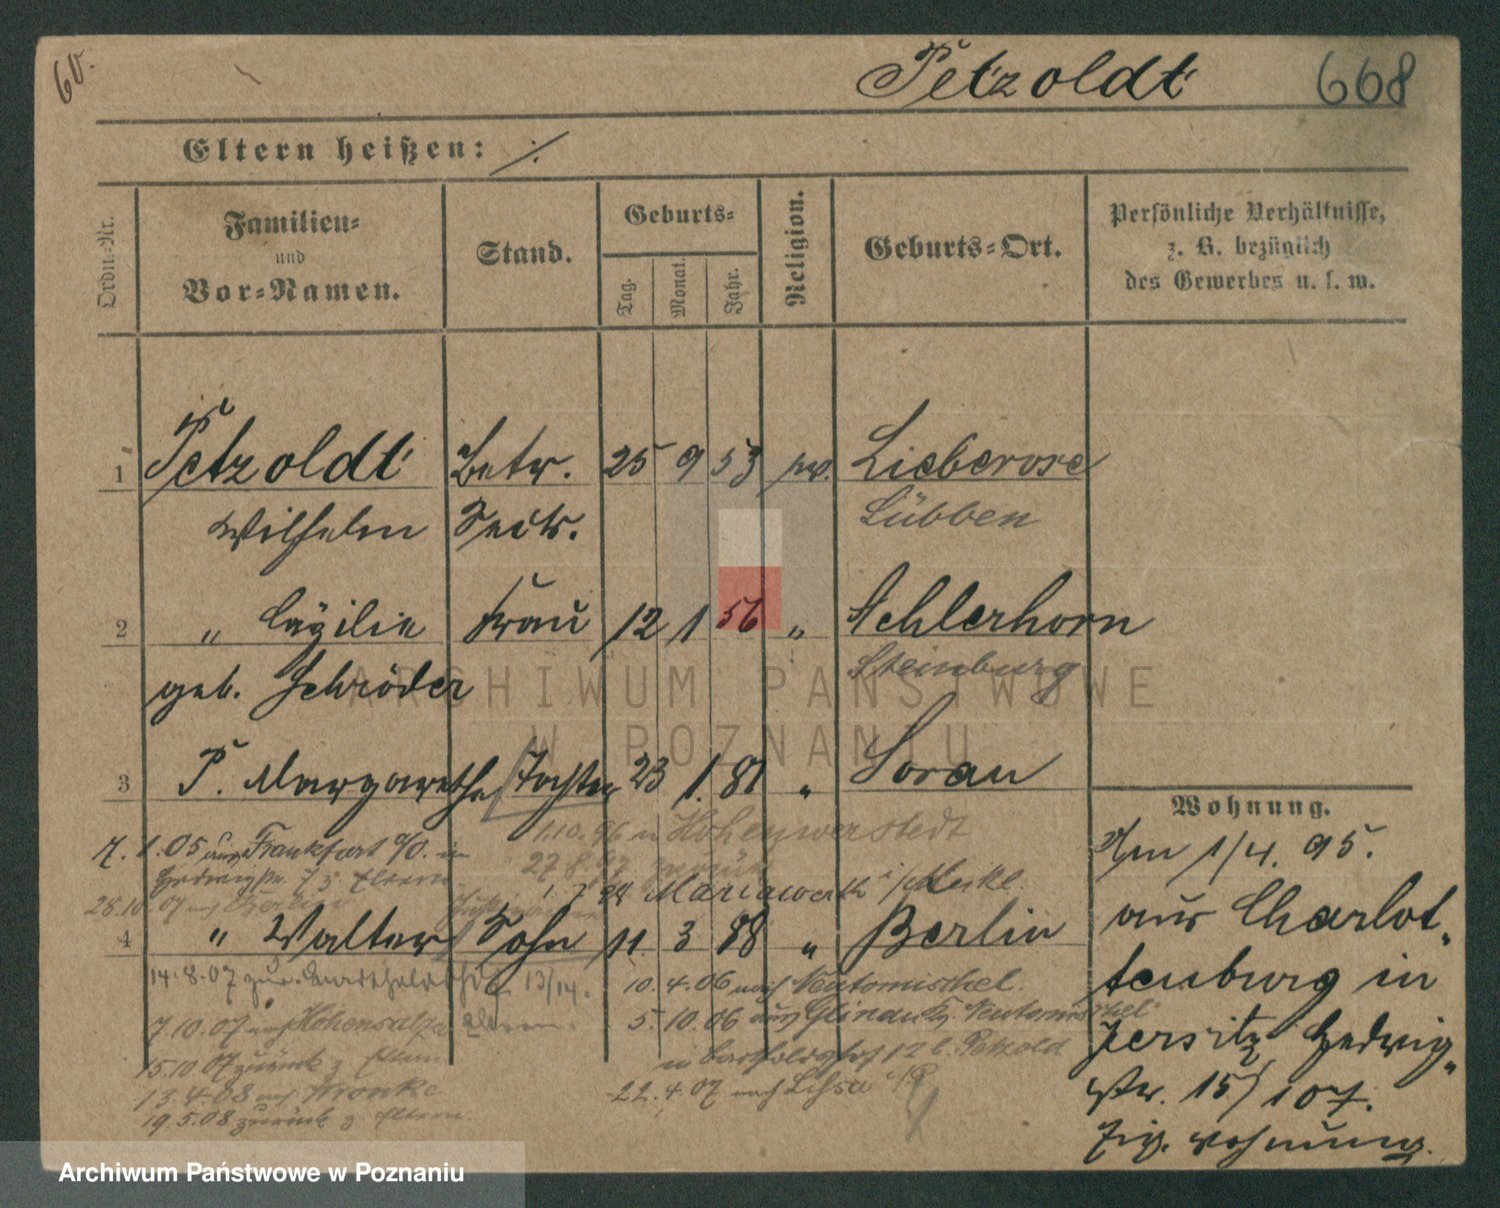 60.
Petzoldt
668
Eltern heißen: ./.
Ordn.-Nr.
Familien-
und
Vor-Namen.
Stand.
Geburts-
Tag.
Monat.
Jahr.
Religion.
Geburts-Ort.
Persönliche Verhältnisse,
z. B. bezüglich
des Gewerbes u. s. w.
1 Petzoldt Betr. 25 9 53 ev. Lieberose
Wilhelm Secr. Lübben
2 " Cäzilie Frau 12 1 56 " Achlerhorn
geb. Schröder Steinburg
3 P. Margarethe Tochter 23 1. 81 " Sorau
1.10.96 n Hoyerswerda
7. 1.05 aus Frankfurt a/O. in
27.8.97 zurück
Hedwigstr. Eltern
1. 7 98 Mariawerth i/Meckl.
28.10.07 nach Berlin
4 " Walter Sohn 11. 3 88 " Berlin
14.8.07 zur. 13/14.
10. 4.06 nach Neutomischel.
7.10.07 nach Hohensalza
5. 10.06 aus Glinau Kr. Neutomischel
15.10.07 zurück z. Eltern
in 12 b. Petzold
13.4.08 nach Wronke
22. 4.07 nach Lissa i/P
19.5.08 zurück z. Eltern.
Wohnung.
Am 1/4. 95.
aus Charlot-
tenburg in
Jersitz Hedwig-
str. 15/107.
Zig. wohnung.
ARCHIWUM PAŃSTWOWE
W POZNANIU
Archiwum Państwowe w Poznaniu